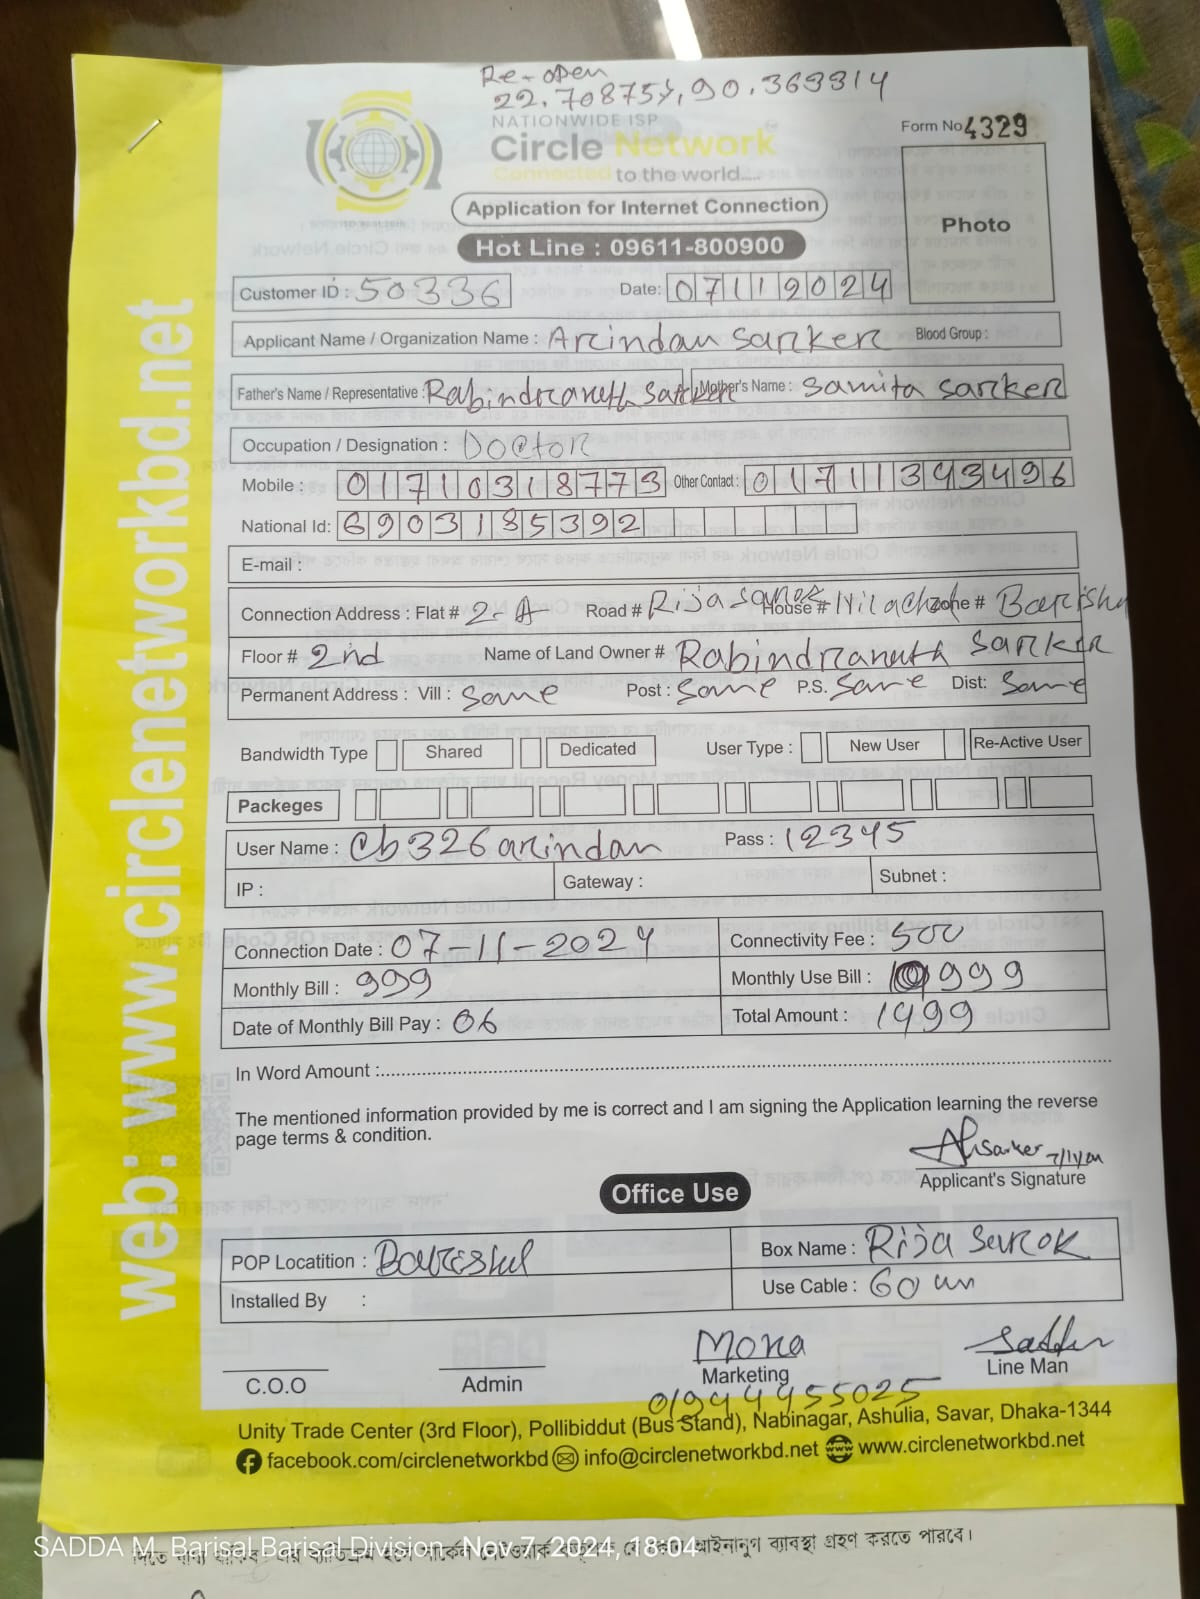 Re-open
22.708754,90.363314
NATIONWIDE ISP
Circle Network
Connected to the world.....
Form No 4329
Application for Internet Connection
Photo
Hot Line : 09611-800900
Customer ID : 50336 Date: 07112024
Applicant Name / Organization Name : Arindan Sarker Blood Group :
Father's Name / Representative : Rabindranath Sarker Mother's Name : Samita Sarker
Occupation / Designation : Doctor
Mobile : 01710318773 Other Contact : 01711343496
National Id: 6903185392
E-mail :
Connection Address : Flat # 2-A Road # Rija Sarok House # Nilachol Zone # Barishal
Floor # 2nd Name of Land Owner # Rabindranath Sarker
Permanent Address : Vill : Same Post : Same P.S. Same Dist: Same
Bandwidth Type Shared Dedicated User Type : New User Re-Active User
Packeges
User Name : Cb326arindan Pass : 12345
IP : Gateway : Subnet :
Connection Date : 07-11-2024 Connectivity Fee : 500
Monthly Bill : 999 Monthly Use Bill : 999
Date of Monthly Bill Pay : 06 Total Amount : 1499
In Word Amount :
The mentioned information provided by me is correct and I am signing the Application learning the reverse
page terms & condition.
Ahsarker 7/11/24
Applicant's Signature
Office Use
POP Locatition : Barishal Box Name : Rija Sarok
Installed By : Use Cable : 60 m
Mona Sadder
C.O.O Admin Marketing Line Man
01944455025
Unity Trade Center (3rd Floor), Pollibiddut (Bus Stand), Nabinagar, Ashulia, Savar, Dhaka-1344
facebook.com/circlenetworkbd info@circlenetworkbd.net www.circlenetworkbd.net
web: www.circlenetworkbd.net
SADDA M, Barisal,Barisal Division, Nov 7, 2024, 18:04
আইনানুগ ব্যবস্থা গ্রহণ করতে পারবে।